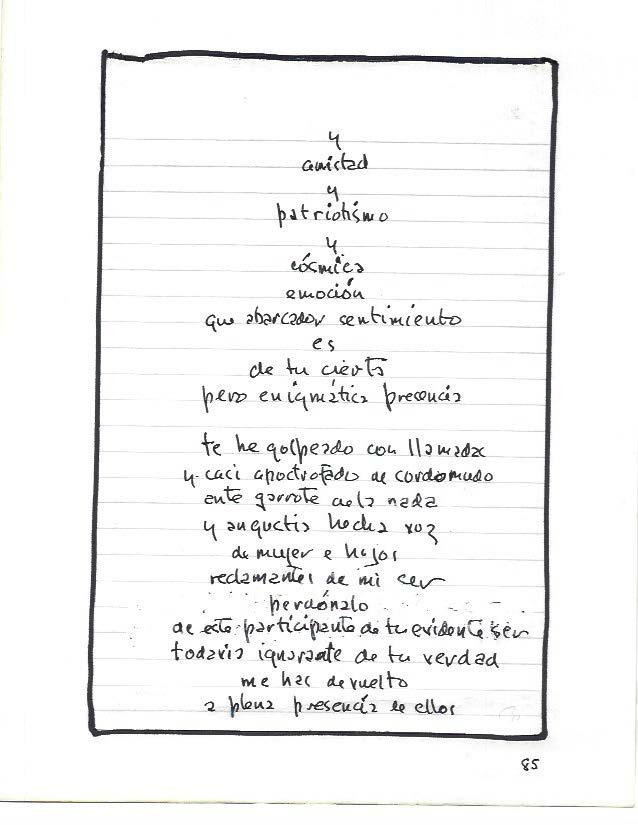 y
amistad
y
patriotismo
y
cósmica
emoción
que abarcador sentimiento
es
de tu cierta
pero enigmática presencia
te he golpeado con llamadas
y casi apostrofado de sordomudo
ante garrote de la nada
y angustia hecha voz
de mujer e hijos
reclamantes de mi ser
perdónalo
de este participante de tu evidente ser
todavia ignorante de tu verdad
me has devuelto
a plena presencia de ellos
85